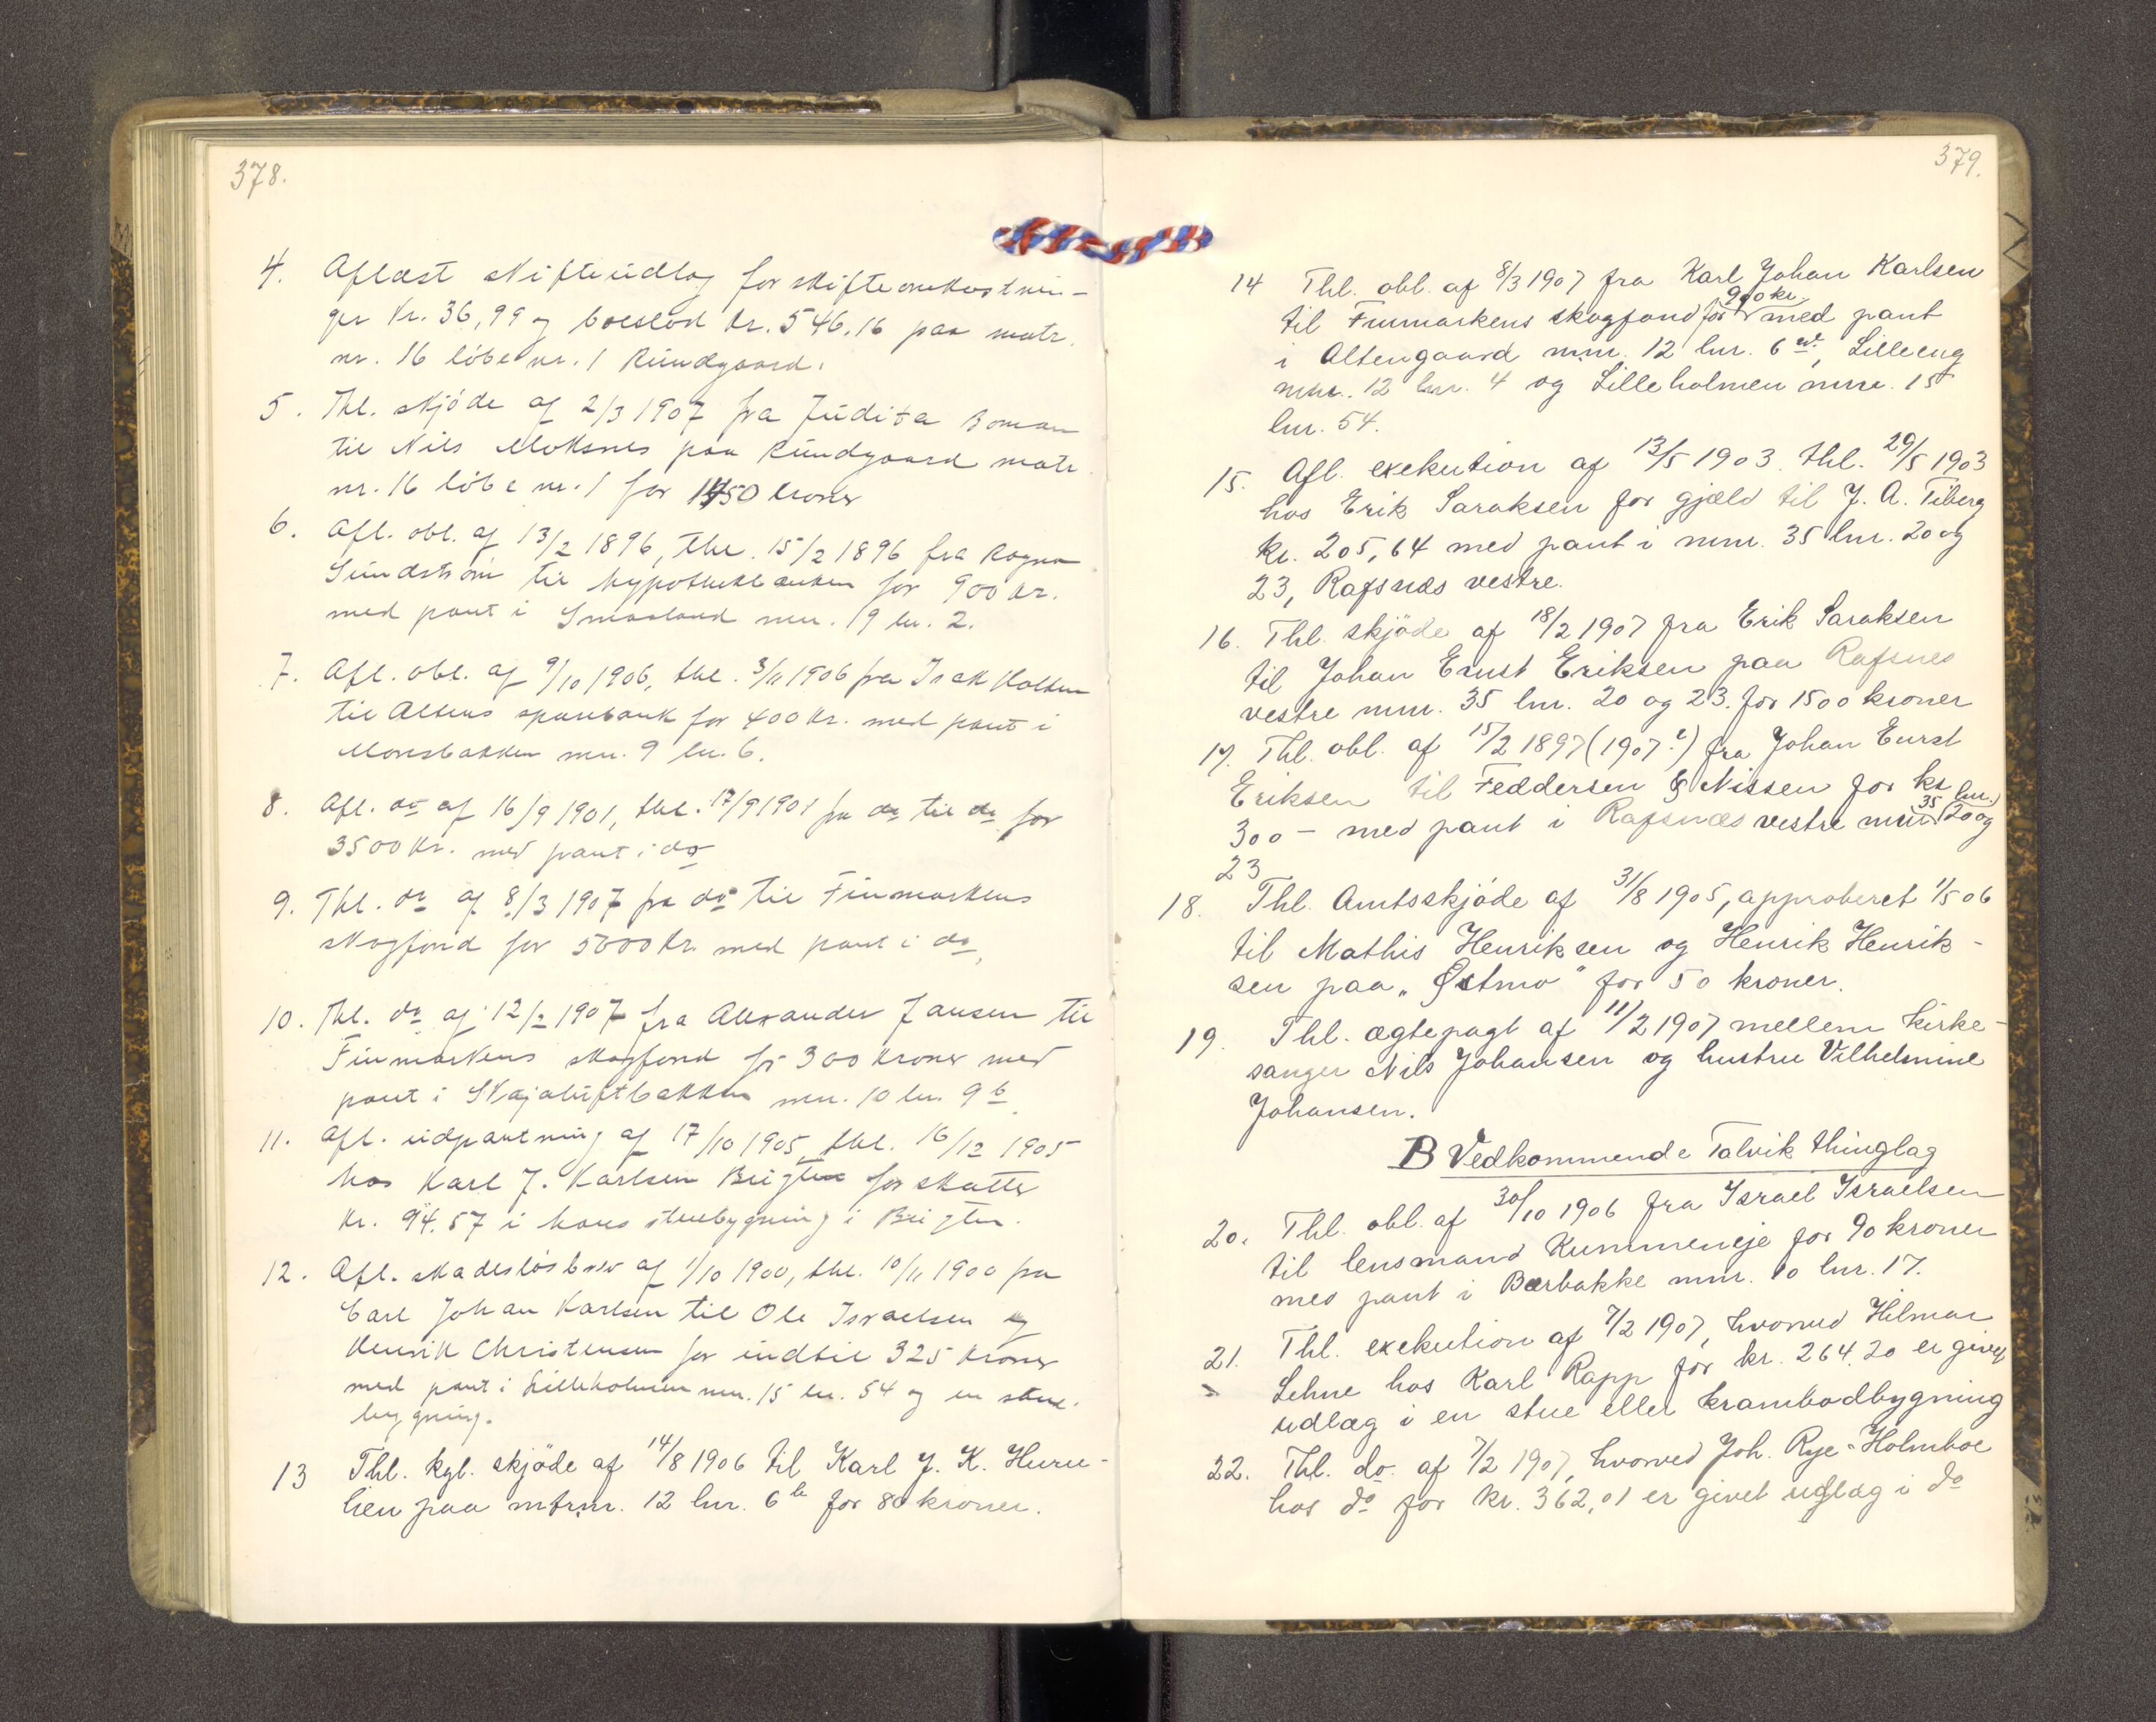 378.
4. Aflæst skifteudlæg for skifteomkostnin-
ger kr. 36,99 og boeslod kr. 546.16 paa matr.
nr. 16 löbe nr. 1 Rundgaard.
5. Thl. skjöde af 2/3 1907 fra Judita Boman
til Nils Moksnes paa Rundgaard matr
nr. 16 löbe nr. 1 for 1450 kroner
6. Afl. obl. af 13/2 1896, thl. 15/2 1896 fra Ragna
Sundström til hypothekbanken for 900 kr.
med pant i Smaaland mnr. 19 lnr. 2.
7. Afl. obl. af 9/10 1906, thl. 3/11 1906 fra Isak
til Altens sparebank for 400 kr. med pant i
mnr. 9 lnr. 6.
8. Afl. do af 16/9 1901, thl. 17/9 1901 fra do til do for
3500 kr. med pant i do
9. Thl. do af 8/3 1907 fra do til Finmarkens
skogfond for 5000 kr. med pant i do,
10. Thl. do af 12/2 1907 fra Alexander Jansen til
Finmarkens skogfond for 300 kroner med
pant i mnr. 10 lnr. 9 b
11. Afl. udpantning af 17/10 1905, thl. 16/12 1905
hos Karl J. Karlsen for skatter
kr. 94.57 i hans stuebygning i
12. Afl. skadeslösbrev af 1/10 1900, thl. 10/11 1900 fra
Carl Johan Karlsen til Ole Israelsen og
Henrik Christensen for indtil 325 kroner
med pant i Lilleholmen mnr. 15 lnr. 54 og en stue-
bygning.
13 Thl. kgl. skjöde af 14/8 1906 til Karl J. K. Huru-
lien paa mtrnr. 12 lnr. 6 b for 80 kroner.
379.
14 Thl. obl. af 8/3 1907 fra Karl Johan Karlsen
900 kr.
til Finmarkens skogfond for med pant
i Altengaard mnr. 12 lnr. 6, Lilleeng
mnr. 12 lnr. 4 og Lilleholmen mnr. 15
lnr. 54.
15. Afl. exekution af 13/5 1903. thl. 29/5 1903
hos Erik Saraksen for gjæld til J. A. Tiberg
kr. 205,64 med pant i mnr. 35 lnr. 20 og
23, Rafsnæs vestre.
16. Thl. skjöde af 18/2 1907 fra Erik Saraksen
til Johan Ernst Eriksen paa Rafsnes
vestre mnr. 35 lnr. 20 og 23. for 1500 kroner
17. Thl. obl. af 15/2 1897 (1907?) fra Johan Eurst
Eriksen til Feddersen & Nissen for kr
35 lnr.
300 - med pant i Rafsnæs vestre mnr 20 og
23
18. Thl. Amtsskjöde af 31/8 1905, approberet 1/5 06
til Mathis Henriksen og Henrik Henrik-
sen paa „Østmo" for 50 kroner.
19. Thl. ægtepagt af 11/2 1907 mellem kirke-
sanger Nils Johansen og hustru Vilhelmine
Johansen.
B Vedkommende Talvik thinglag
20. Thl. obl. af 30/10 1906 fra Israel Israelsen
til lensmand Kummeneje for 90 kroner
med pant i Bærbakke mnr. 10 lnr. 17.
21. Thl. exekution af 7/2 1907, hvorved Hilmar
Lehne hos Karl Rapp for kr. 264,20 er givet
udlæg i en stue eller krambodbygning
22. Thl. do. af 7/2 1907, hvorved Joh. Rye-Holmboe
hos do for kr. 362,01 er givet udlæg i do